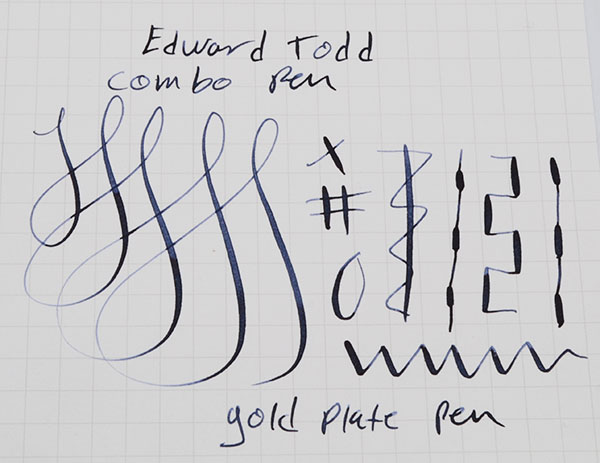 Edward Todd
combo pen
x
#
0
gold plate pen